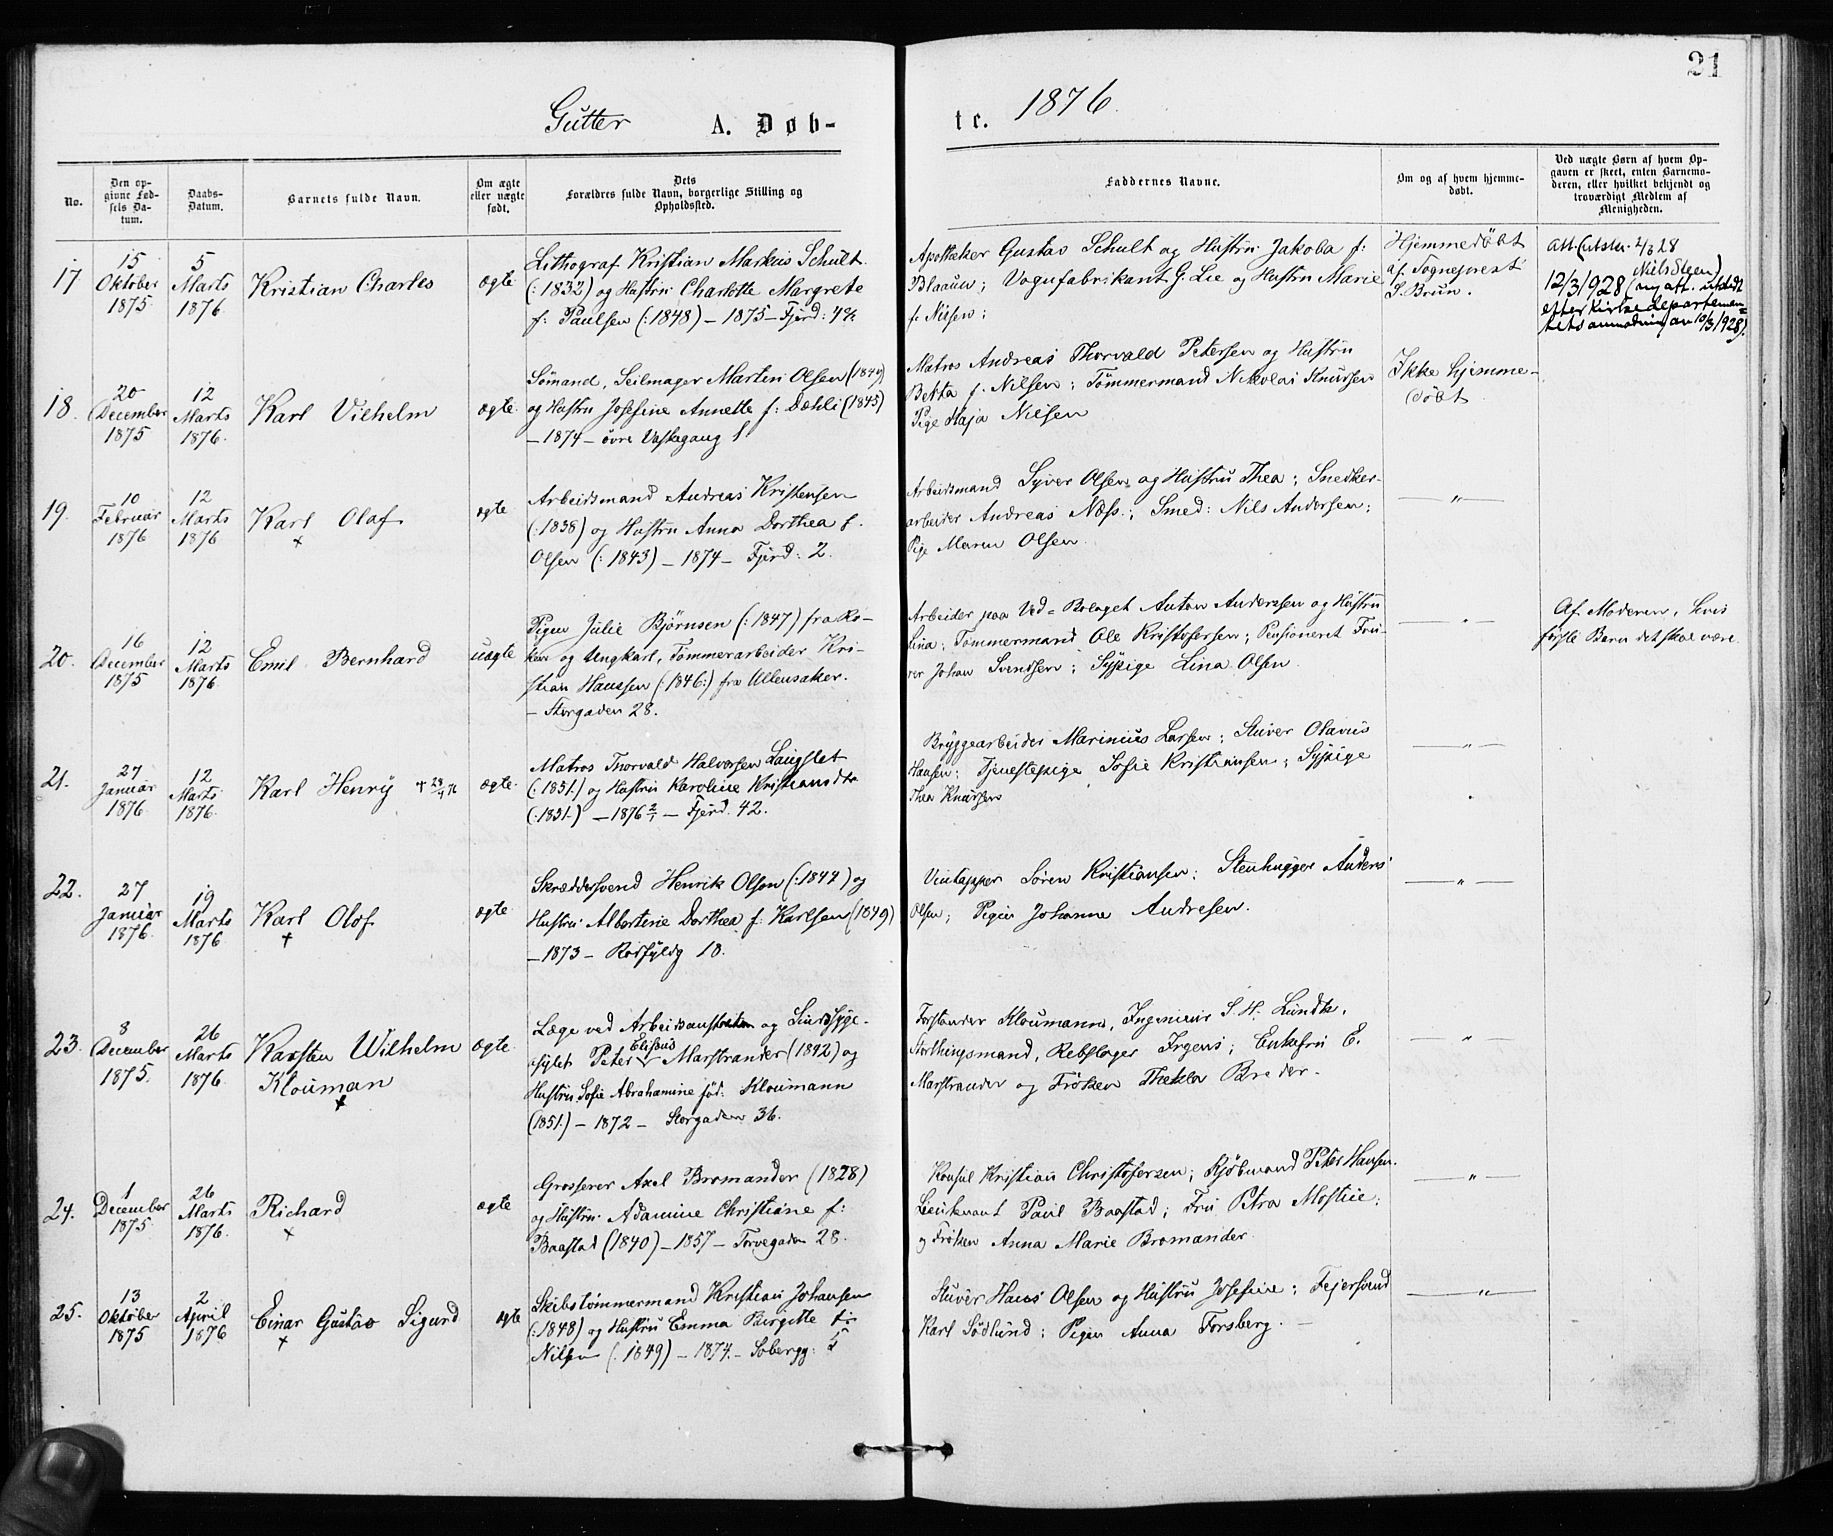 21
Gutter A. Døb-
te. 1876.
No.
Den op-
givne Fød-
sels Da-
tum.
Daabs-
Datum.
Barnets fulde Navn.
Om ægte
eller uægte
født.
Dets
Forældres fulde Navn, borgerlige Stilling og
Opholdssted.
Faddernes Navne.
Om og af hvem hjemme-
døbt.
Ved uægte Børn af hvem Op-
gaven er skeet, enten Barnemo-
deren, eller hvilket bekjendt og
troværdigt Medlem af
Menigheden.
17
15
Oktober
1875
5
Marts
1876
Kristian Charles
ægte
Lithograf Kristian Markus Schult
(: 1832) og Hustru Charlotte Margrete
f: Paulsen (: 1848) – 1875 – Fjerd:
Apotheker Gustav Schult og Hustru Jakoba f:
Blaauw; Vognfabrikant G. Lie og Hustru Marie
f: Nilsen;
Hjemmedøbt
af Sogneprest
Brun.
Att. Utst. 2/3 28
(Niels Steen)
12/3 1928 (ny att. utstedt
efter kirkedepartemen-
tets anmodning av 10/3 1928).
18.
20
December
1875
12
Marts
1876.
Karl Vilhelm
ægte.
Sømand, Seilmager Martin Olsen (1849)
og Hustru Josefine Annette f: Dæhli (1845)
– 1874 – øvre Vaskegang 1
Matros Andreas Thorvald Petersen og Hustru
Betta f. Nilsen; Tømmermand Nikolai Knudsen
Pige Maja Nilsen
Ikke hjemme-
døbt
19.
10
Februar
1876
12
Marts
1876
Karl Olaf
+
ægte
Arbeidsmand Andreas Kristensen
(: 1838) og Hustru Anna Dorthea f.
Olsen (: 1843) – 1874 – Fjerd: 2.
Arbeidsmand Syver Olsen og Hustru Thea; Snedker-
arbeider Andreas Næss; Smed: Nils Andersen;
Pige Maren Olsen
— „ —
20.
16
December
1875
12
Marts
1876.
Emil Bernhard
uægte
Pigen Julie Bjørnsen (: 1847) fra Rø-
ken og Ungkarl, Tømmerarbeider Kri-
stian Hanssen (: 1846:) fra Ullensaker.
– Storgaden 28.
Arbeider paa Ved-Bolaget Anton Anderssen og Hustru
Lina; Tømmermand Ole Kristofersen; Pensioneret Fru-
rer Johan Svendsen; Sypige Lina Olsen
— „ —
Af Moderen, hvis
første Barn det skal være
21.
27
Januar
1876
12
Marts
1876.
Karl Henry + 23/4 76
ægte.
Matros Thorvald Halvorsen Langslet
(: 1851.) og Hustru Karoline Kristiansdtr
(: 1851.) – 1876 2/1 – Fjerd. 42.
Bryggearbeider Marinius Larsen; Stuver Olavus
Hansen; Tjenestepige Sofie Kristiansen; Sypige
Thea Knudsen
— „ —
22.
27
Januar
1876
19
Marts
1876.
Karl Olof
+
ægte
Skræddersvend Henrik Olson (: 1842) og
Hustru Albertine Dorthea f: Karlsen (1849)
– 1873 – Rodfyldg 10.
Vintapper Søren Kristiansen; Stenhugger Anders
Olsen; Pigen Johanne Andresen.
— „ —
23.
8
December
1875.
26
Marts
1876
Karsten Wilhelm
Klouman
+
ægte.
Læge ved Arbeidsanstalten og Sindssyge-
asylet Peter Elisæus Marstrander (1842) og
Hustru Sofie Abrahamine fød: Kloumann
(1851.) – 1872 – Storgaden 36.
Forstander Kloumann, Ingeniør S. H. Lundh,
Storthingsmand, Rebslager Irgens; Enkefru E.
Marstrander og Frøken Thekla Breder.
— „ —
24.
1
December
1875.
26
Marts
1876.
Richard
+
ægte
Grosserer Axel Bromander (1828)
og Hustru Adamine Christiane f:
Baastad (1840) – 1857 – Torvegaden 28.
Konsul Kristian Christofersen; Kjøbmand Peter Hansen.
Lieutenant Paul Baastad; Fru Petra Mostue;
og Frøken Anna Marie Bromander.
— „ —
25.
13
Oktober
1875
2
April
1876
Einar Gustav Sigurd
+
ægte
Skibstømmermand Kristian Johansen
(: 1848) og Hustru Emma Birgitte f:
Nilsen (: 1849) – 1874. – Sobergg: 5
Stuver Hans Olsen og Hustru Josefine; Fejersvend
Karl Södlund; Pigen Anna Forsberg. –
— „ —